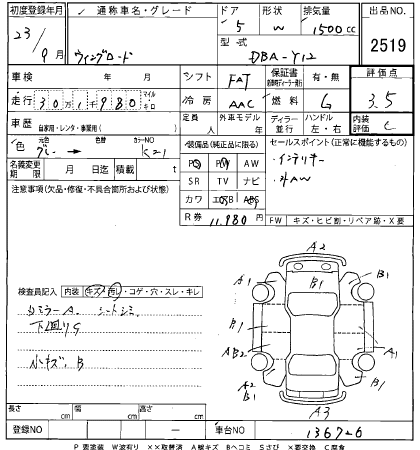 初度登録年月 通称車名・グレード ドア 形状 排気量 出品NO.
23/9月 ウィングロード 5 W 1500cc 2519
型式 DBA-Y12
車検 年 月 シフト FAT 保証書 有・無 評価点
走行 30万1千980 マイル キロ 冷房 AAC 燃料 G 3.5
車歴 自家用・レンタ・事業用( ) 定員 人 外車モデル 年 ディーラー 並行 ハンドル 左・右 内装評価 C
色 元色 グレー → 色替 カラーNO K21
装備品(純正品に限る) セールスポイント(正常に機能するもの)
名義変更期限 月 日迄 積載 t
PS PW AW ・インテリキー
SR TV ナビ ・社外AW
注意事項(欠品・修復・不具合箇所および状態)
カワ エアB ABS
R券 11,980円 FW キズ・ヒビ割・リペア跡・X要
検査員記入 内装 キズ・汚レ・コゲ・穴・スレ・キレ
ミラーA シートシミ
下回りS
小キズ、B
A2
A1 B1 B1
B1 A1
AB2
A2 B1 B1
A3
長さ cm 幅 cm 高さ cm
登録NO ー 車台NO 136726
P 要塗装 W 波有り ××取替済 A 線キズ B ヘコミ S さび ×要交換 C 腐食